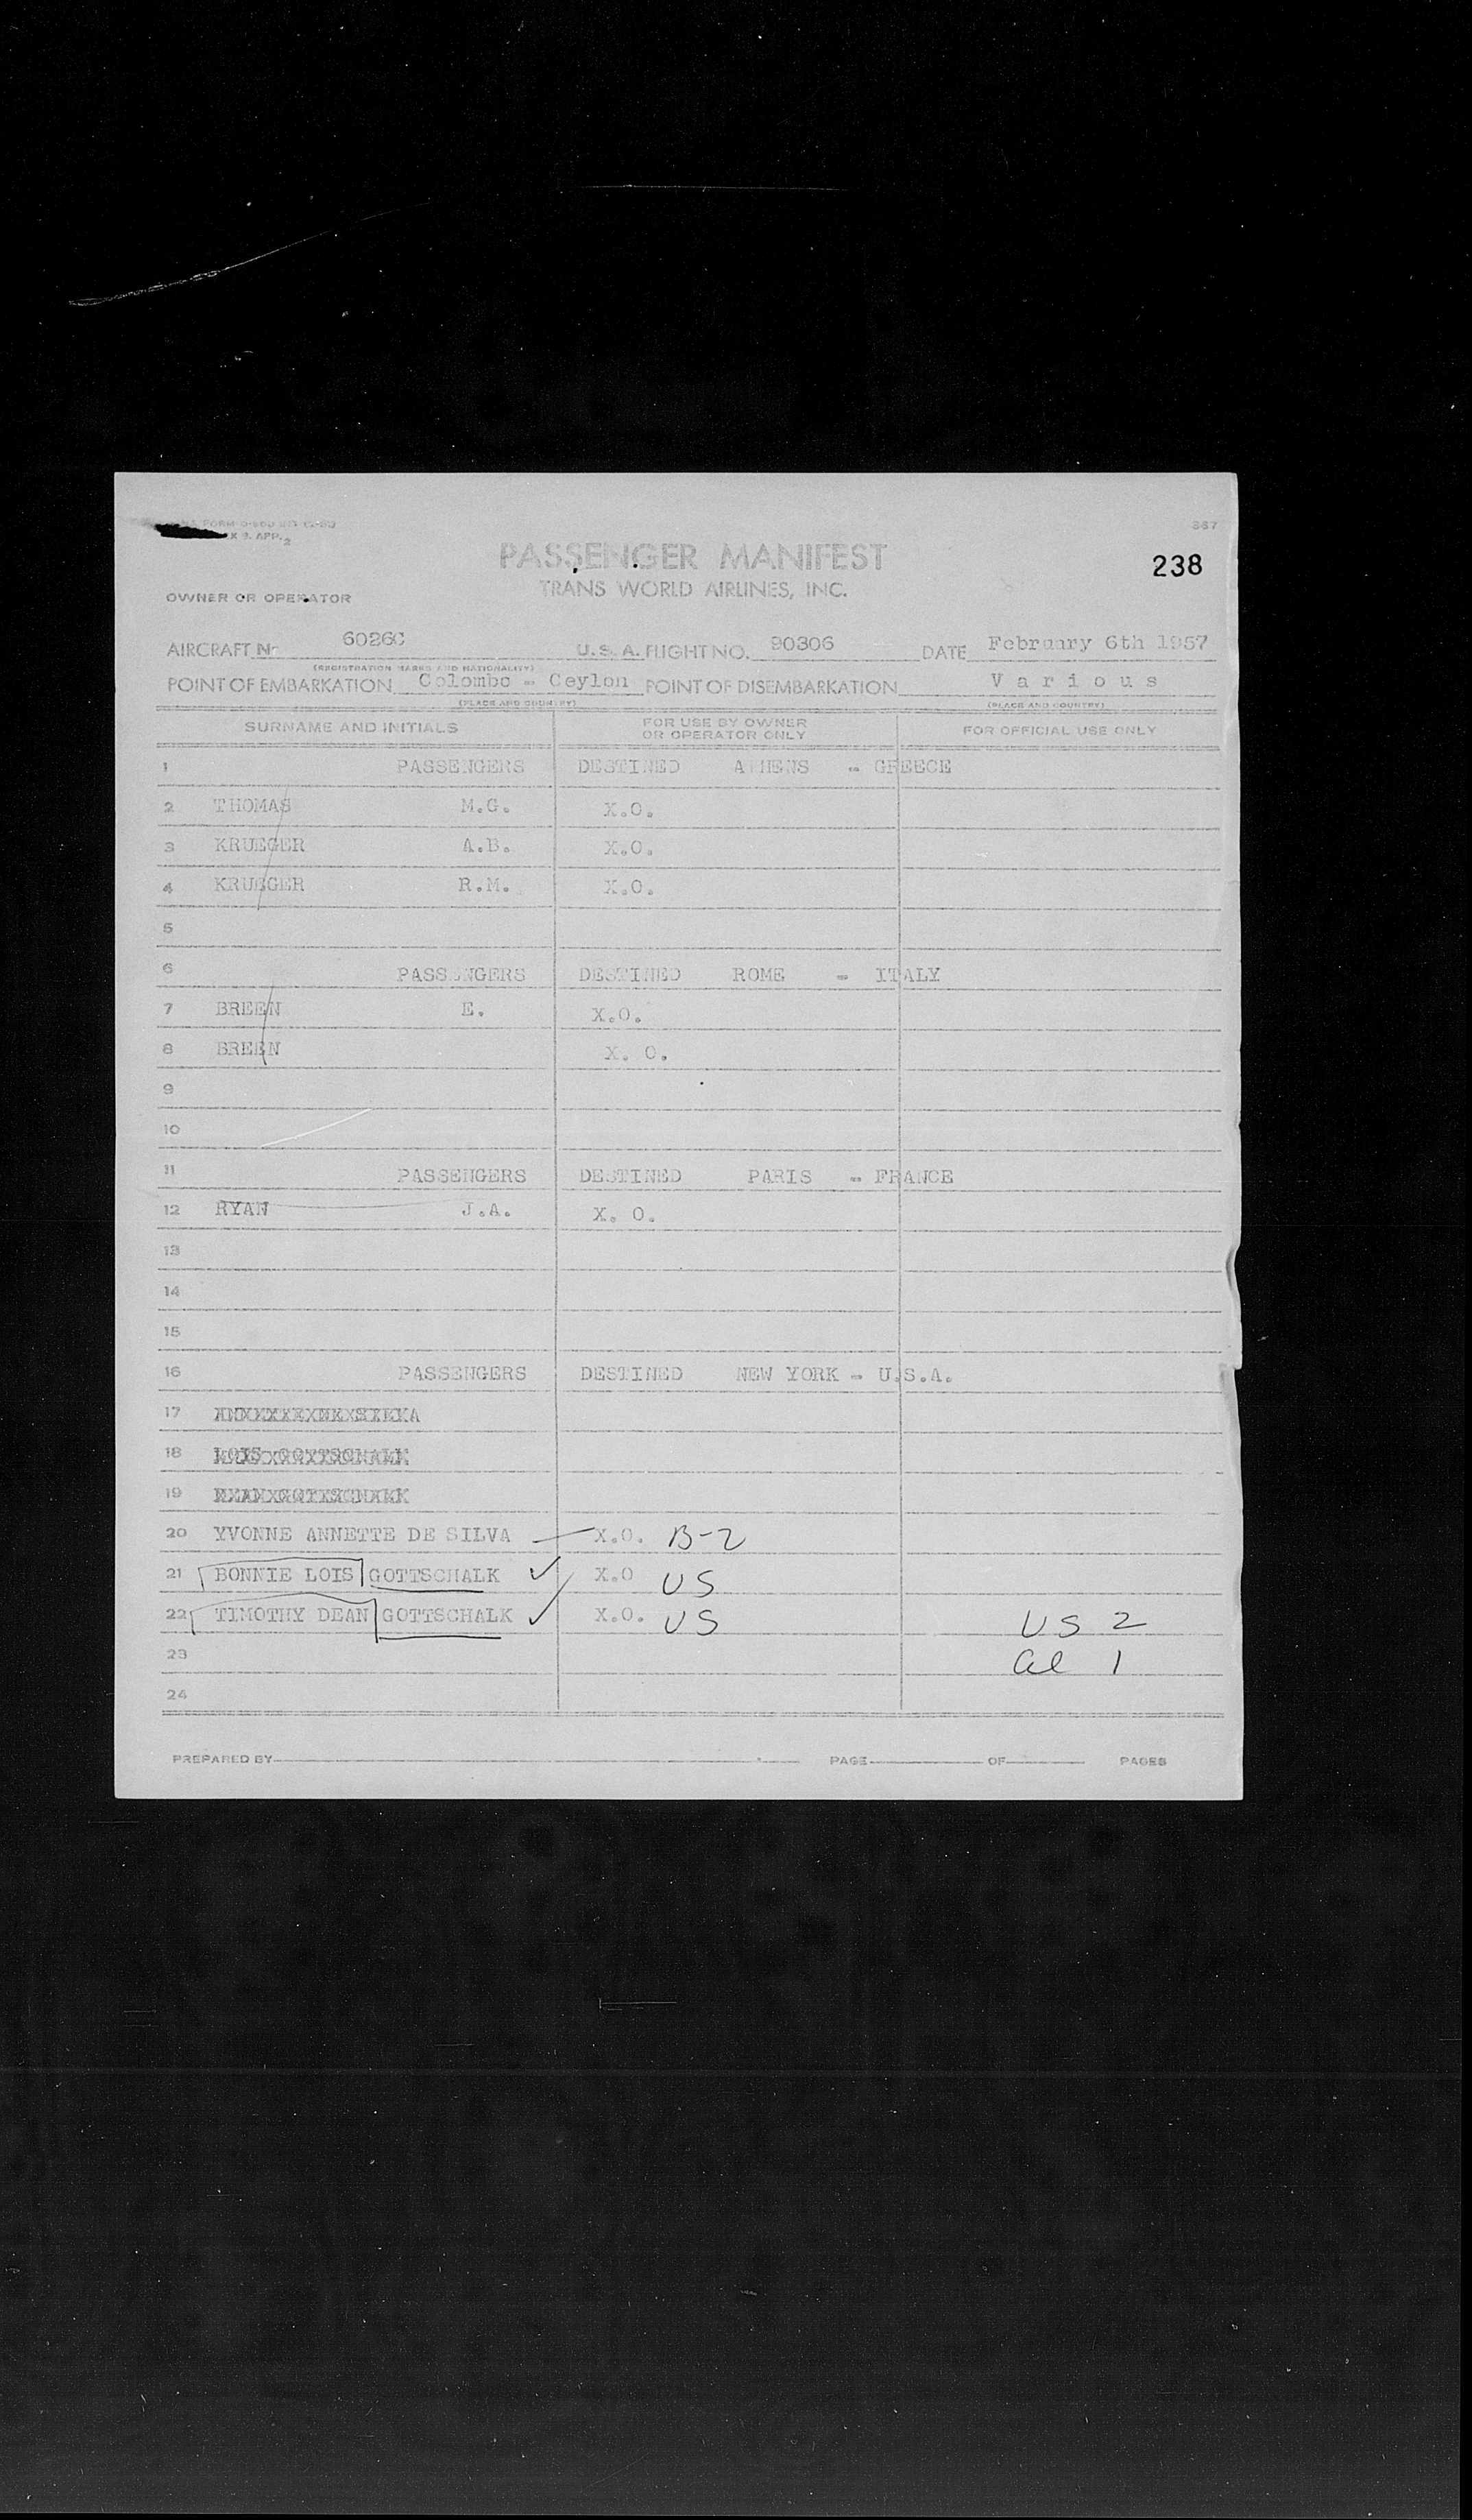 367
X 9. APP. 2
PASSENGER MANIFEST
238
TRANS WORLD AIRLINES, INC.
OWNER OR OPERATOR
AIRCRAFT Nr 6026C U.S.A. FLIGHT NO. 90306 DATE February 6th 1957
(REGISTRATION MARKS AND NATIONALITY)
POINT OF EMBARKATION Colombo - Ceylon POINT OF DISEMBARKATION Various
(PLACE AND COUNTRY) (PLACE AND COUNTRY)
SURNAME AND INITIALS FOR USE BY OWNER OR OPERATOR ONLY FOR OFFICIAL USE ONLY
1 PASSENGERS DESTINED ATHENS - GREECE
2 THOMAS M.G. X.O.
3 KRUEGER A.B. X.O.
4 KRUEGER R.M. X.O.
5
6 PASSENGERS DESTINED ROME - ITALY
7 BREEN E. X.O.
8 BREEN X. O.
9
10
11 PASSENGERS DESTINED PARIS - FRANCE
12 RYAN J.A. X. O.
13
14
15
16 PASSENGERS DESTINED NEW YORK - U.S.A.
17
18 LOIS GOTTSCHALK
19 GOTTSCHALK
20 YVONNE ANNETTE DE SILVA X.O. B-2
21 BONNIE LOIS GOTTSCHALK X.O US
22 TIMOTHY DEAN GOTTSCHALK X.O. US US 2
23 al 1
24
PREPARED BY PAGE OF PAGES